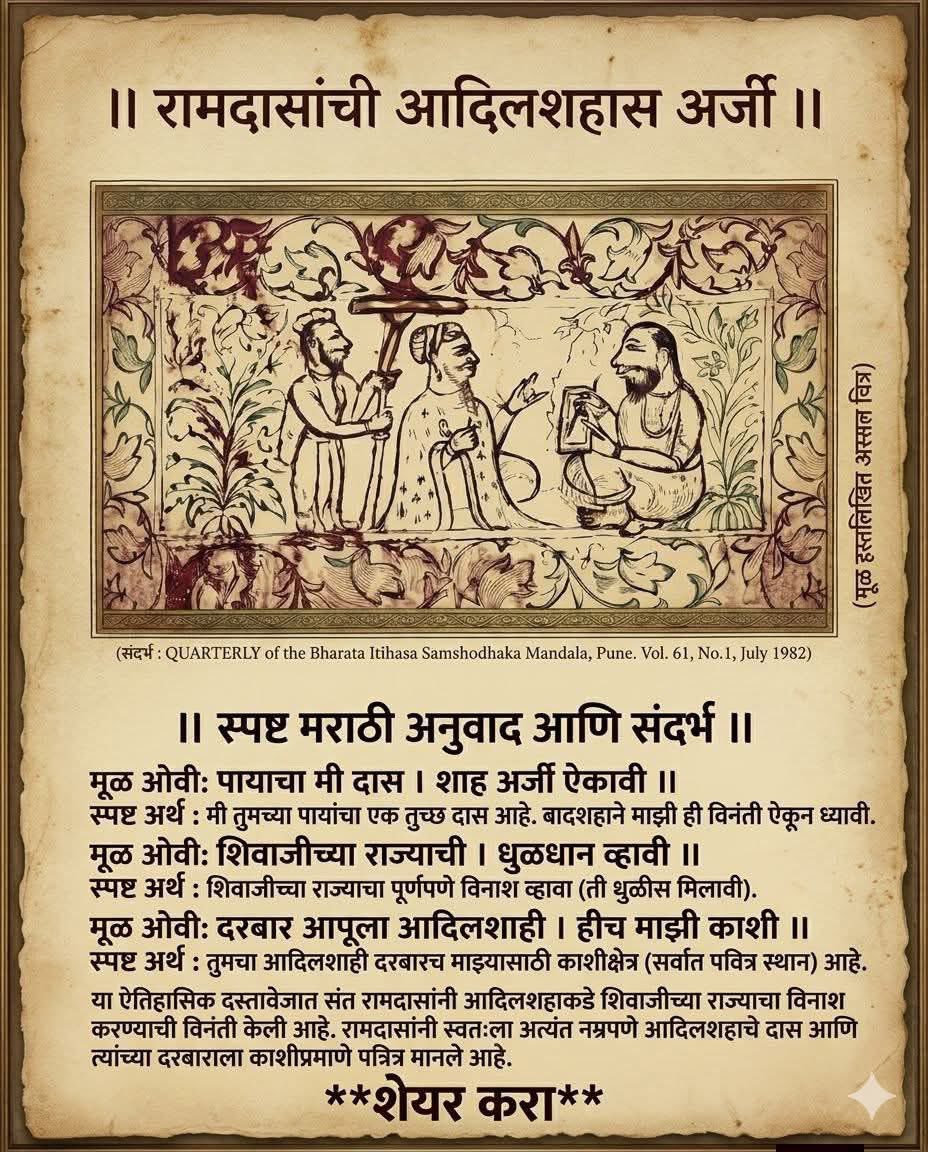 ॥ रामदासांची आदिलशहास अर्जी ॥
(मूळ हस्तलिखित अस्सल चित्र)
(संदर्भ : QUARTERLY of the Bharata Itihasa Samshodhaka Mandala, Pune. Vol. 61, No.1, July 1982)
॥ स्पष्ट मराठी अनुवाद आणि संदर्भ ॥
मूळ ओवी: पायाचा मी दास । शाह अर्जी ऐकावी ॥
स्पष्ट अर्थ : मी तुमच्या पायांचा एक तुच्छ दास आहे. बादशहाने माझी ही विनंती ऐकून ध्यावी.
मूळ ओवी: शिवाजीच्या राज्याची । धुळधान व्हावी ॥
स्पष्ट अर्थ : शिवाजीच्या राज्याचा पूर्णपणे विनाश व्हावा (ती धुळीस मिलावी).
मूळ ओवी: दरबार आपूला आदिलशाही । हीच माझी काशी ॥
स्पष्ट अर्थ : तुमचा आदिलशाही दरबारच माझ्यासाठी काशीक्षेत्र (सर्वात पवित्र स्थान) आहे.
या ऐतिहासिक दस्तावेजात संत रामदासांनी आदिलशहाकडे शिवाजीच्या राज्याचा विनाश
करण्याची विनंती केली आहे. रामदासांनी स्वतःला अत्यंत नम्रपणे आदिलशहाचे दास आणि
त्यांच्या दरबाराला काशीप्रमाणे पत्रित्र मानले आहे.
**शेयर करा**